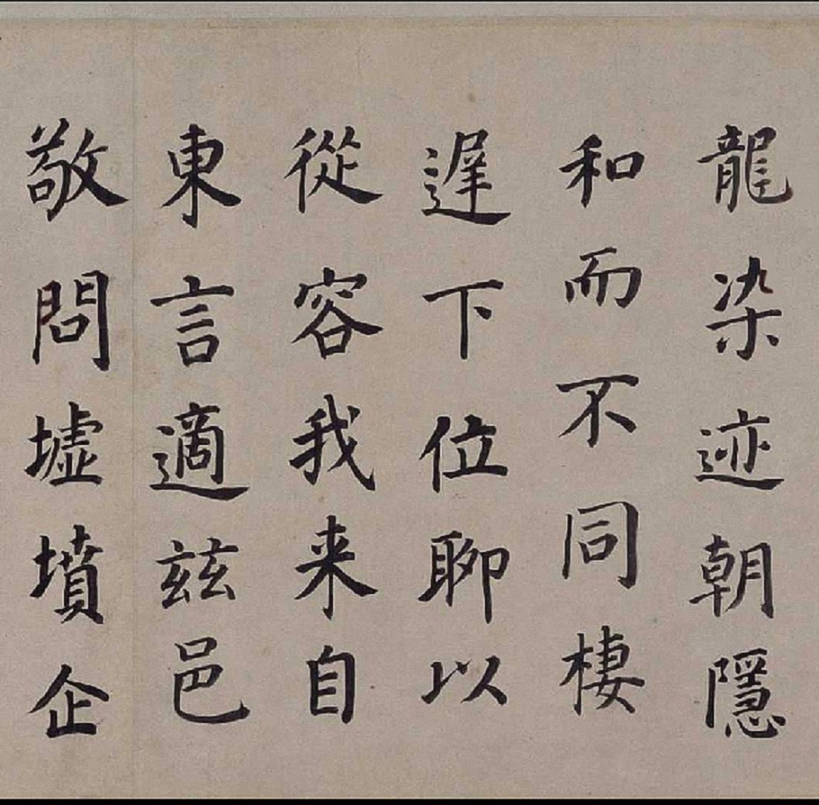 龍染迹朝隱
和而不同棲
遟下位聊以
從容我来自
東言適茲邑
敬問墟墳企